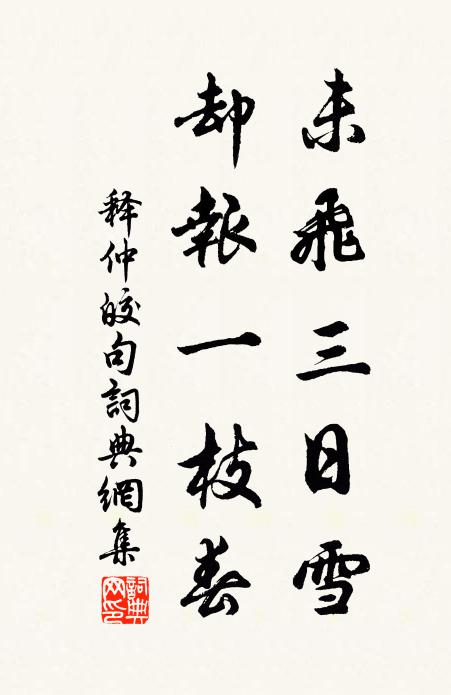 未飛三日雪
却報一枝春
释仲皎句詞典網集
詞典网印